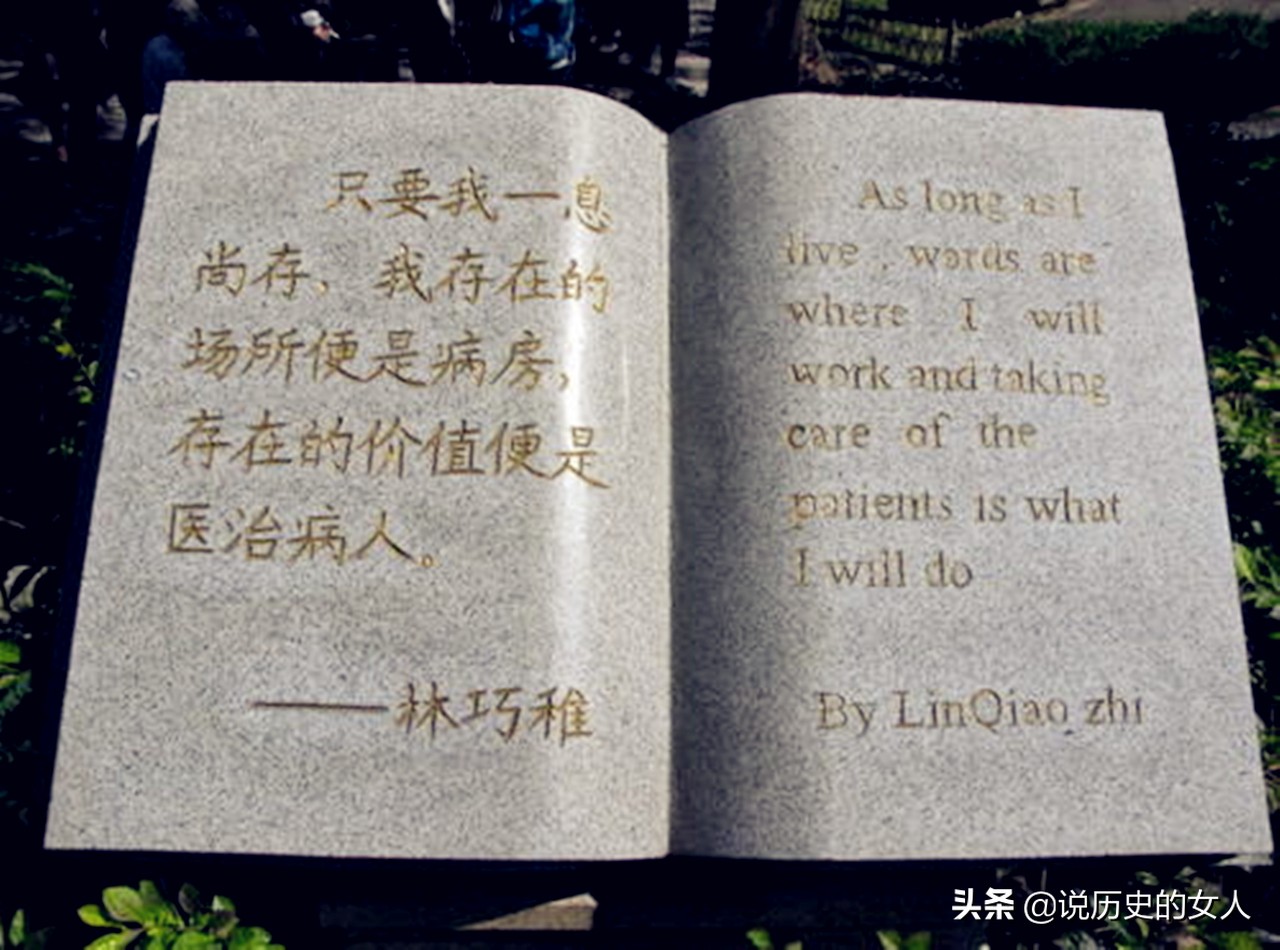 只要我一息
尚存，我存在的
场所便是病房，
存在的价值便是
医治病人。
——林巧稚
As long as I
live , words are
where I will
work and taking
care of the
patients is what
I will do
By LinQiao zhi
头条 @说历史的女人